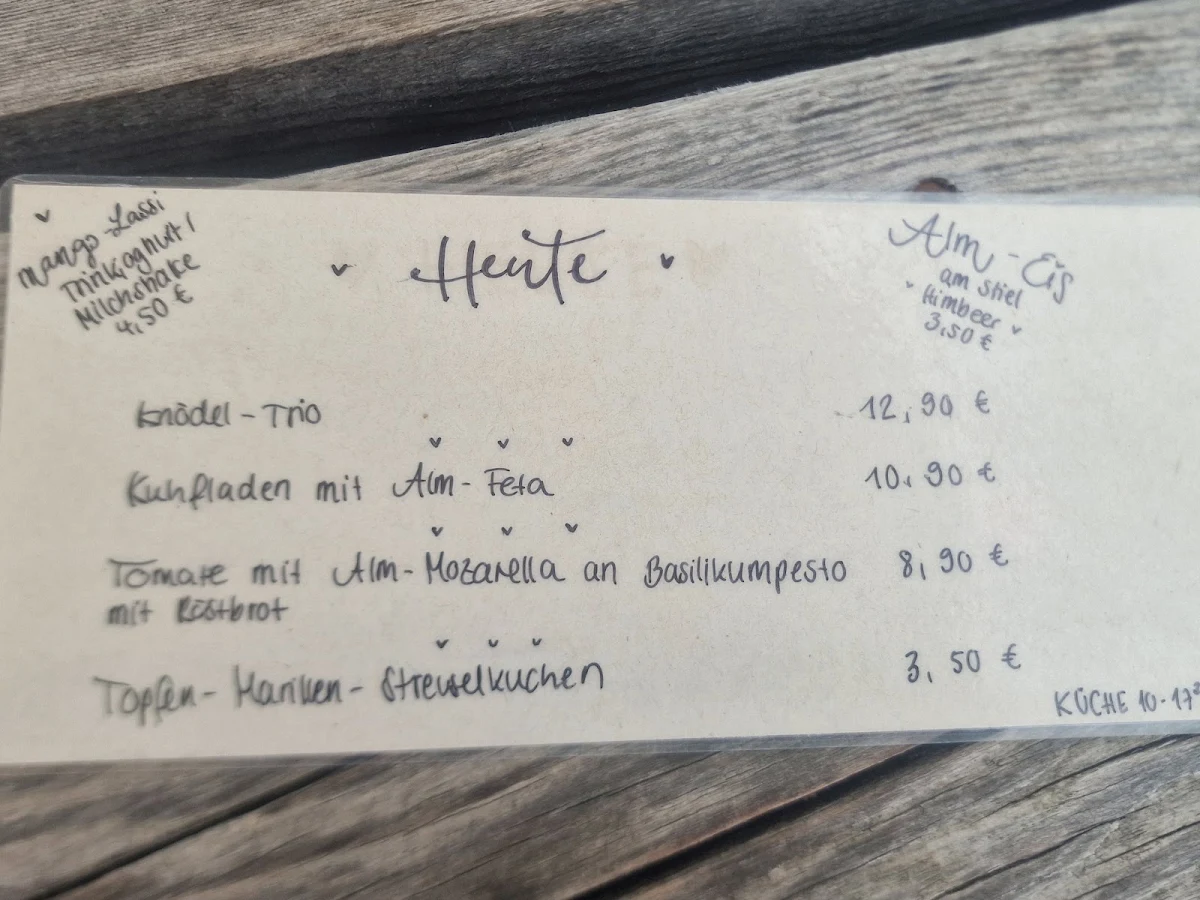 Mango-Lassi
Trinkjoghurt /
Milchshake
4,50 €
Heute
Alm-Eis
am Stiel
Himbeer
3,50 €
Knödel-Trio 12,90 €
Kuhfladen mit Alm-Feta 10,90 €
Tomate mit Alm-Mozarella an Basilikumpesto 8,90 €
mit Röstbrot
Topfen-Marillen-Streuselkuchen 3,50 €
KÜCHE 10-17